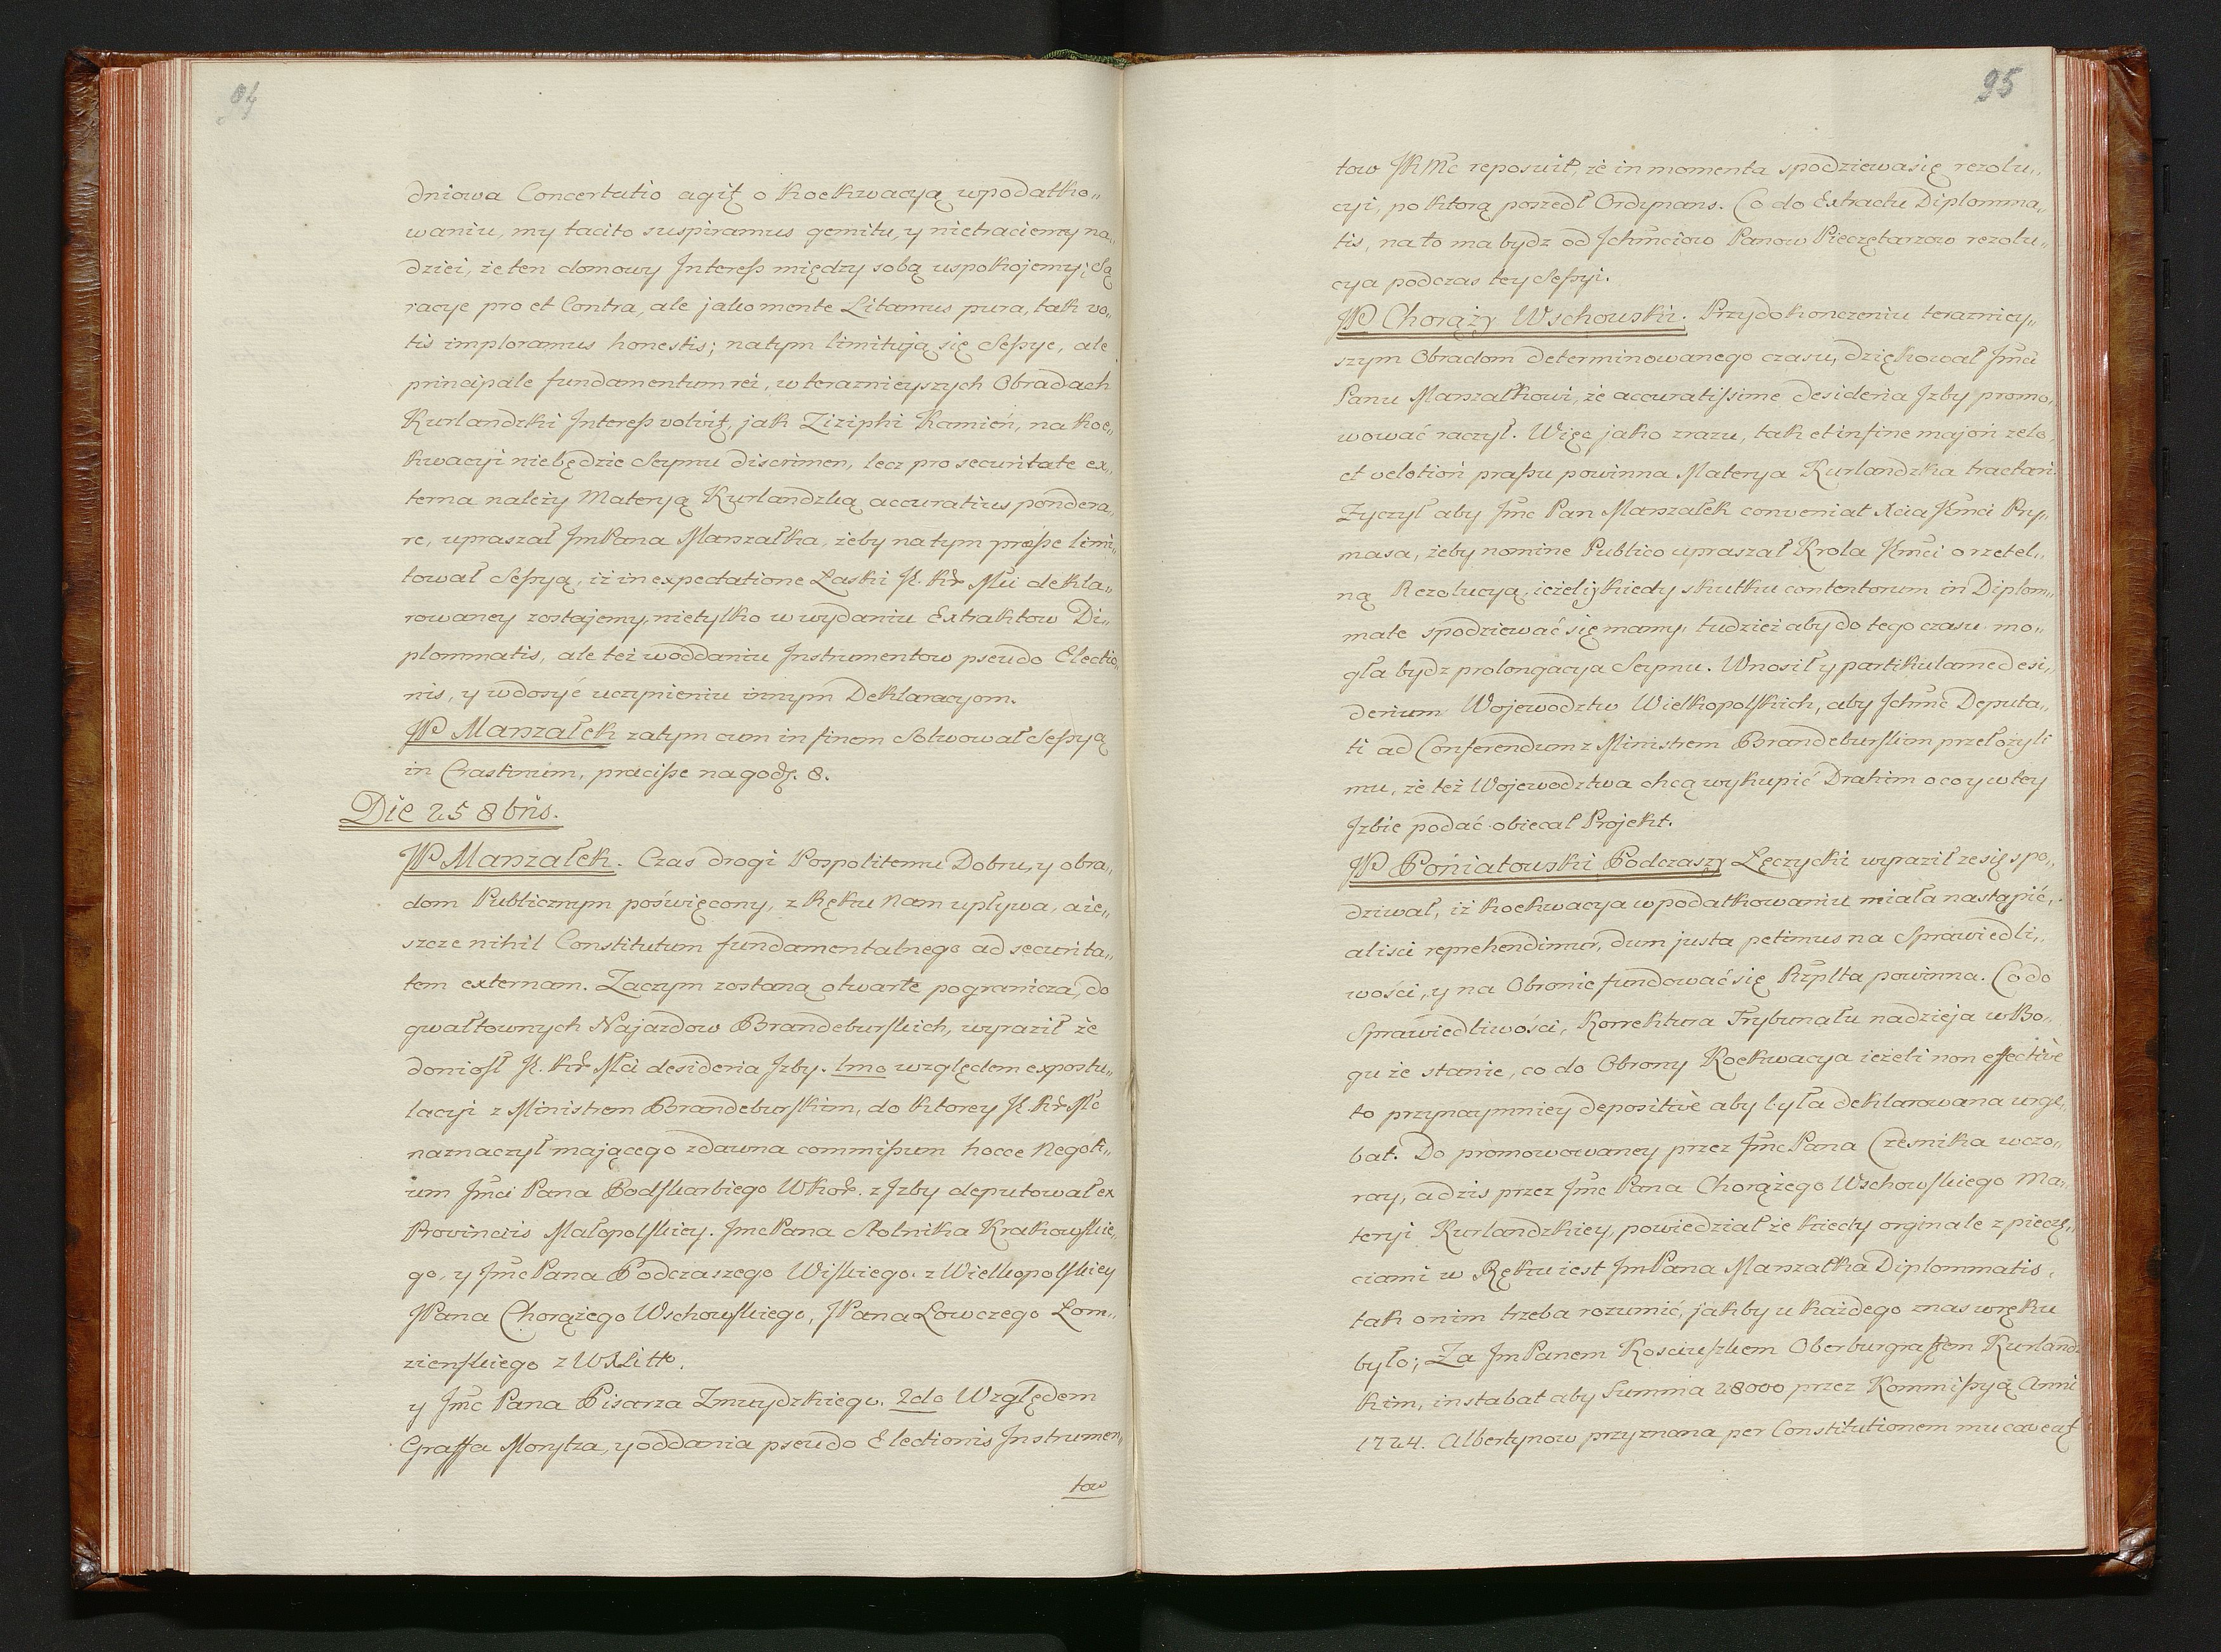 94
dniowa Concertatio agit̃ o Koekwacyą wpodatko„
waniu, my tacito suspiramus gemitu, y nietraciemy na„
dziei, że ten domowy Interess między sobą uspokojemy; Są
racye pro et Contra, ale jako mente Litamus pura, tak vo„
tis imploramus honestis; natym limitują się Sessye, ale
principale fundamentum rei, w teraznieyszych Obradach
Kurlandzki Interess volvit̃, jak Ziziphi Kamień, na Koe„
kwacyi niebędzie Seymu discrimen, lecz pro securitate ex„
terna należy Materyą Kurlandzką accuratius pondera„
re, upraszał JmPana Marszałka, żeby na tym præsse limi„
tował Sessyą, iż in expectatione Łaski J. Kr̃ Mci dekla„
rowaney zostajemy, nietylko w wydaniu Extraktow Di„
plommatis, ale też w oddaniu Instrumentow pseudo Electio„
nis, y w dosyć uczynieniu innym Deklaracyom.
JP Marszałek zatym cum in finem Solwował Sessyą
in Crastinum, præcisse na godz. 8.
Die 25 8bris.
JP Marszałek. Czas drogi Pospolitemu Dobru, y obra„
dom Publicznym poświęcony, z Ręku Nam upływa, a ie„
szcze nihil Constitutum fundamentalnego ad securita„
tem externam. Zaczym zostaną otwarte pogranicza, do
gwałtownych Najazdow Brandeburskich, wyraził że
doniosł J. Kr̃ Mci desideria Izby. 1mo względem expostu„
lacyi z Ministrem Brandeburskim, do ktorey J. Kr̃ Mc
naznaczył mającego zdawna commissum hocce Negoti„
um Jmci Pana Podskarbiego WKor. z Izby deputował ex
Provinciis Małopolskiey. Jmc Pana Stolnika Krakowskie„
go, y Jmc Pana Podczaszego Wiskiego. z Wielkopolskiey
JPana Chorążego Wschowskiego, JPana Łowczego Łom„
zienskiego z WXLitt.
y Jmc Pana Pisarza Zmuydzkiego. 2do Względem
Graffa Morytza, y oddania pseudo Electionis Instrumen„
tow
95
tow JKMc reposuit, że in momenta spodziewasię rezolu„
cyi, po ktorą poszedł Ordynans. Co do Extractu Diplomma„
tis, na to ma bydz od Ichmciow Panow Pieczętarzow rezolu„
cya podczas tey Sessyi.
JP Chorąży Wschowski. Przydokonczeniu terazniey„
szym Obradom determinowanego czasu, dziękował Jmci
Panu Marszałkowi, że accuratissime desideria Izby promo„
wować raczył. Więc jako zrazu, tak et in fine majori zelo,
et velotiori prassu powinna Materya Kurlandzka tractari.
Zyczył aby Jmc Pan Marszałek conveniat Xcia Jmci Pry„
masa, żeby nomine Publico upraszał Krola Jmci o rzetel„
ną Rezolucyą, ieżeli y kiedy skutku contentorum in Diplom„
mate spodziewać się mamy, tudzież aby do tego czasu mo„
gła bydz prolongacya Seymu. Wnosił y partikularne desi„
derium Wojewodztw Wielkopolskich, aby Ichmc Deputa„
ti ad Conferendum z Ministrem Brandeburskim przełożyli
mu, że też Wojewodztwa chcą wykupić Drahim o co y w tey
Izbie podać obiecał Projekt.
JP Poniatowski Podczaszy Łęczycki wyraził ze się spo„
dziwał, iż koekwacya w podatkowaniu miała nastąpić,
alisci reprehendimur, dum justa petimus na Sprawiedli„
wości, y na Obronie fundować się Rzplta powinna. Co do
Sprawiedliwości, Korrektura Trybunału nadzieja w Bo„
gu że stanie, co do Obrony Koekwacya ieżeli non effectivè
to przynaymniey depositivè aby była deklarowana urge„
bat. Do promowowaney przez Jmc Pana Czesnika wczo„
ray, a dzis przez Jmc Pana Chorążego Wschowskiego Ma„
teryi Kurlandzkiey, powiedział że kiedy orginale z pieczę„
ciami w Ręku iest JmPana Marszałka Diplommatis,
tak o nim trzeba rozumić, jakby u każdego z nas w ręku
było; Za JmPanem Kosciuszkiem Oberburgraffem Kurlandz
kim, instabat aby Summa 28000 przez Kommissyą Anni
1724. Albertynow przyznana per Constitutionem mu caveat̃